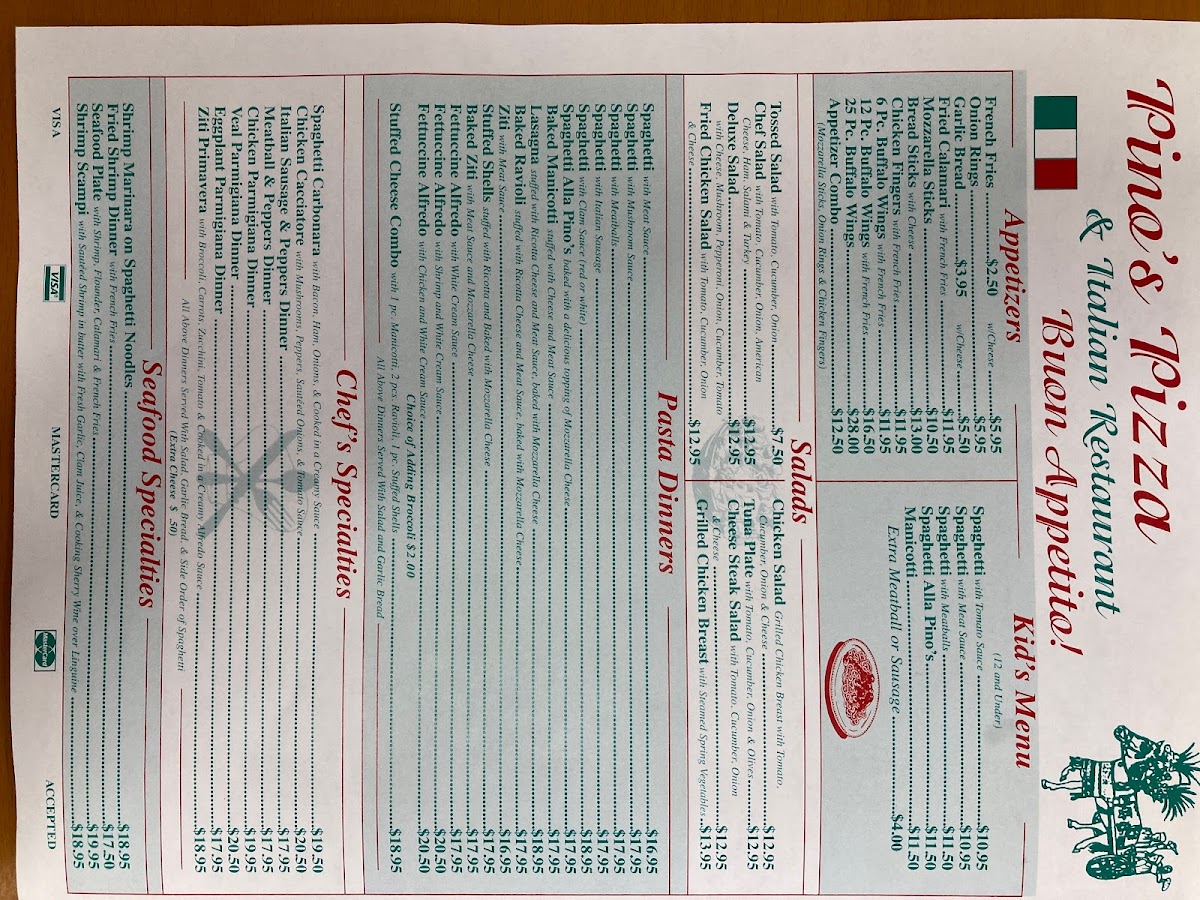 Pino's Pizza
& Italian Restaurant
Buon Appetito!
Appetizers
French Fries $2.50 w/Cheese $5.95
Onion Rings $5.95
Garlic Bread $3.95 w/Cheese $5.50
Fried Calamari with French Fries $11.95
Mozzarella Sticks $10.50
Bread Sticks with Cheese $13.00
Chicken Fingers with French Fries $11.95
6 Pc. Buffalo Wings with French Fries $11.95
12 Pc. Buffalo Wings with French Fries $16.50
25 Pc. Buffalo Wings $28.00
Appetizer Combo $12.50
(Mozzarella Sticks, Onion Rings & Chicken Fingers)
Kid's Menu
(12 and Under)
Spaghetti with Tomato Sauce $10.95
Spaghetti with Meat Sauce $10.95
Spaghetti with Meatballs $11.50
Spaghetti Alla Pino's $11.50
Manicotti $11.50
Extra Meatball or Sausage $4.00
Salads
Tossed Salad with Tomato, Cucumber, Onion $7.50
Chef Salad with Tomato, Cucumber, Onion, American
Cheese, Ham, Salami & Turkey $12.95
Deluxe Salad $12.95
with Cheese, Mushroom, Pepperoni, Onion, Cucumber, Tomato
Fried Chicken Salad with Tomato, Cucumber, Onion
& Cheese $12.95
Chicken Salad Grilled Chicken Breast with Tomato,
Cucumber, Onion & Cheese $12.95
Tuna Plate with Tomato, Cucumber, Onion & Olives $12.95
Cheese Steak Salad with Tomato, Cucumber, Onion
& Cheese $12.95
Grilled Chicken Breast with Steamed Spring Vegetables $13.95
Pasta Dinners
Spaghetti with Meat Sauce $16.95
Spaghetti with Mushroom Sauce $17.95
Spaghetti with Meatballs $17.95
Spaghetti with Italian Sausage $17.95
Spaghetti with Clams Sauce (red or white) $18.95
Spaghetti Alla Pino's baked with a delicious topping of Mozzarella Cheese $17.95
Baked Manicotti stuffed with Cheese and Meat Sauce $17.95
Lasagna stuffed with Ricotta Cheese and Meat Sauce, baked with Mozzarella Cheese $18.95
Baked Ravioli stuffed with Ricotta Cheese and Meat Sauce, baked with Mozzarella Cheese $17.95
Ziti with Meat Sauce $16.95
Stuffed Shells stuffed with Ricotta and Baked with Mozzarella Cheese $17.95
Baked Ziti with Meat Sauce and Mozzarella Cheese $17.95
Fettuccine Alfredo with White Cream Sauce $17.95
Fettuccine Alfredo with Shrimp and White Cream Sauce $20.50
Fettuccine Alfredo with Chicken and White Cream Sauce $20.50
Choice of Adding Broccoli $2.00
Stuffed Cheese Combo with 1 pc. Manicotti, 2 pcs. Ravioli, 1 pc. Stuffed Shells $18.95
All Above Dinners Served With Salad and Garlic Bread
Chef's Specialties
Spaghetti Carbonara with Bacon, Ham, Onions, & Cooked in a Creamy Sauce $19.50
Chicken Cacciatore with Mushrooms, Peppers, Sautéed Onions, & Tomato Sauce $20.50
Italian Sausage & Peppers Dinner $17.95
Meatball & Peppers Dinner $17.95
Chicken Parmigiana Dinner $19.95
Veal Parmigiana Dinner $20.50
Eggplant Parmigiana Dinner $17.95
Ziti Primavera with Broccoli, Carrots, Zucchini, Tomato & Cooked in a Creamy Alfredo Sauce $18.95
All Above Dinners Served With Salad, Garlic Bread, & Side Order of Spaghetti
(Extra Cheese $ .50)
Seafood Specialties
Shrimp Marinara on Spaghetti Noodles $18.95
Fried Shrimp Dinner with French Fries $17.50
Seafood Plate with Shrimp, Flounder, Calamari & French Fries $19.95
Shrimp Scampi with Sautéed Shrimp in butter with Fresh Garlic, Clam Juice, & Cooking Sherry Wine over Linguine $18.95
VISA VISA MASTERCARD MasterCard ACCEPTED